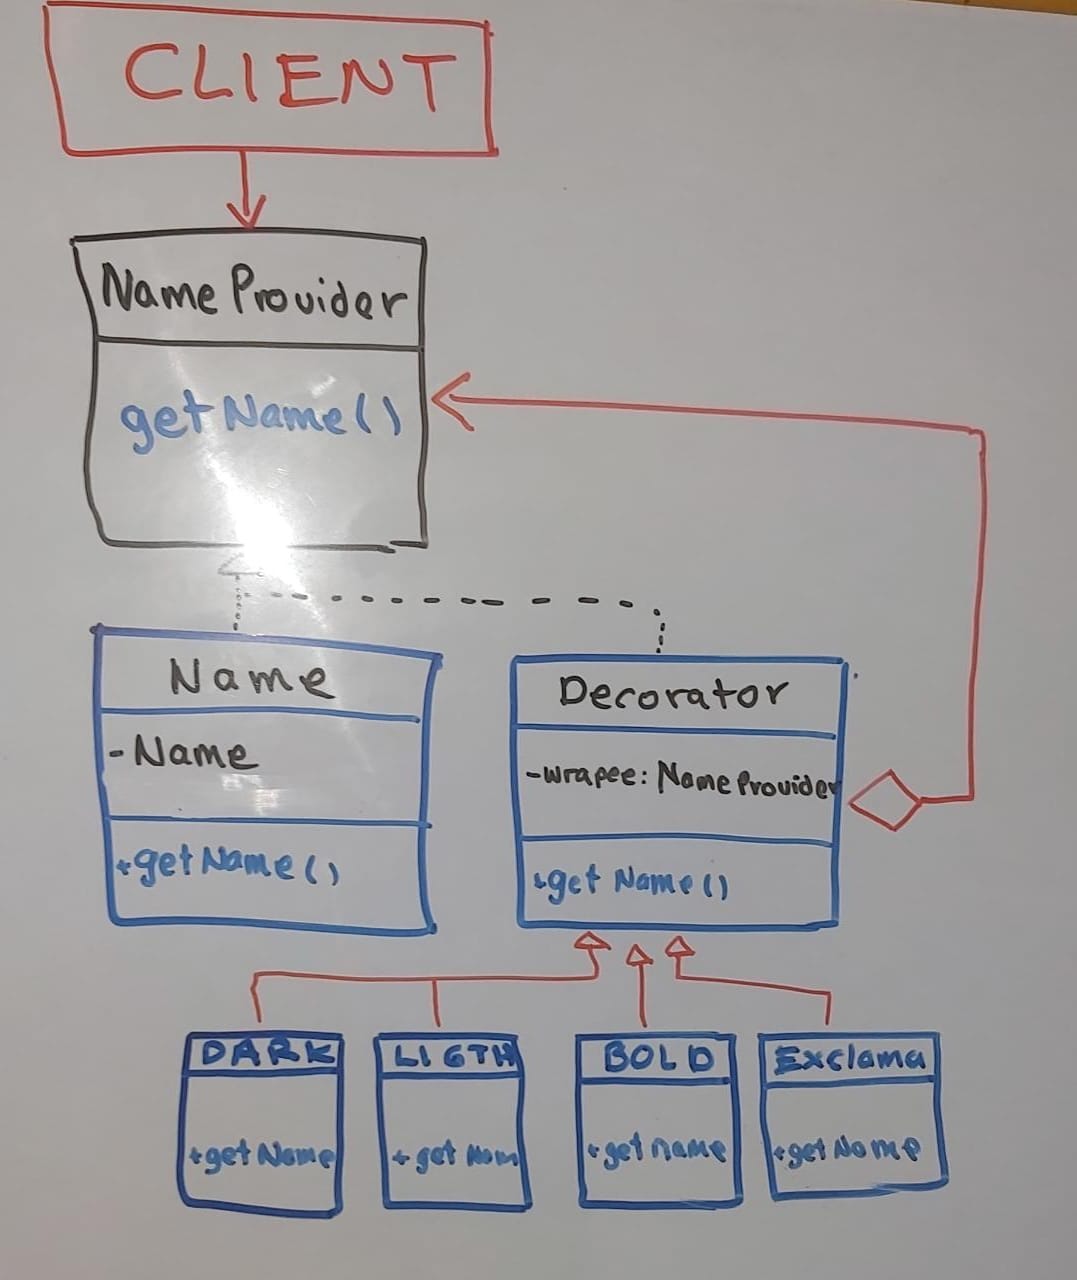 CLIENT
NameProvider
getName()
Name
-Name
+getName()
Decorator
-wrapee: NameProvider
+getName()
DARK
+getName
LIGTH
+getNom
BOLD
+getname
Exclama
+getName